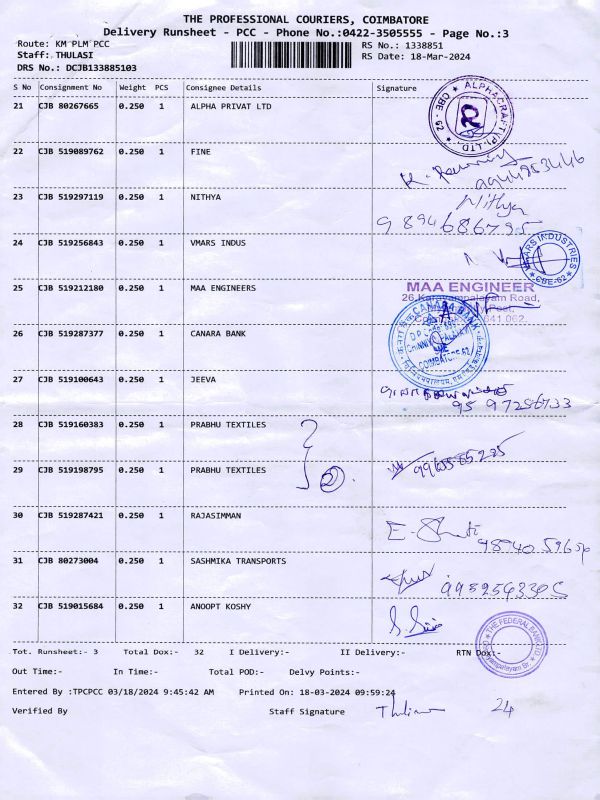 THE PROFESSIONAL COURIERS, COIMBATORE
Delivery Runsheet - PCC - Phone No.:0422-3505555 - Page No.:3
Route: KM PLM PCC
RS No.: 1338851
Staff: THULASI
RS Date: 18-Mar-2024
DRS No.: DCJB133885103
S No Consignment No Weight PCS Consignee Details Signature
21 CJB 80267665 0.250 1 ALPHA PRIVAT LTD
ALPHACRAFT (P) LTD. CBE - 62
22 CJB 519089762 0.250 1 FINE
23 CJB 519297119 0.250 1 NITHYA Nithya
9894686795
24 CJB 519256843 0.250 1 VMARS INDUS
VMARS INDUSTRIES CBE-62
25 CJB 519212180 0.250 1 MAA ENGINEERS MAA ENGINEER
26, Karavampalayam Road,
Post,
641 062.
26 CJB 519287377 0.250 1 CANARA BANK
CANARA BANK
COIMBATORE 62
27 CJB 519100643 0.250 1 JEEVA
28 CJB 519160383 0.250 1 PRABHU TEXTILES
29 CJB 519198795 0.250 1 PRABHU TEXTILES 2
30 CJB 519287421 0.250 1 RAJASIMMAN
31 CJB 80273004 0.250 1 SASHMIKA TRANSPORTS
32 CJB 519015684 0.250 1 ANOOPT KOSHY
THE FEDERAL BANK LTD
Tot. Runsheet:- 3 Total Dox:- 32 I Delivery:- II Delivery:- RTN Dox:-
Out Time:- In Time:- Total POD:- Delvy Points:-
Entered By :TPCPCC 03/18/2024 9:45:42 AM Printed On: 18-03-2024 09:59:24
Verified By Staff Signature 24